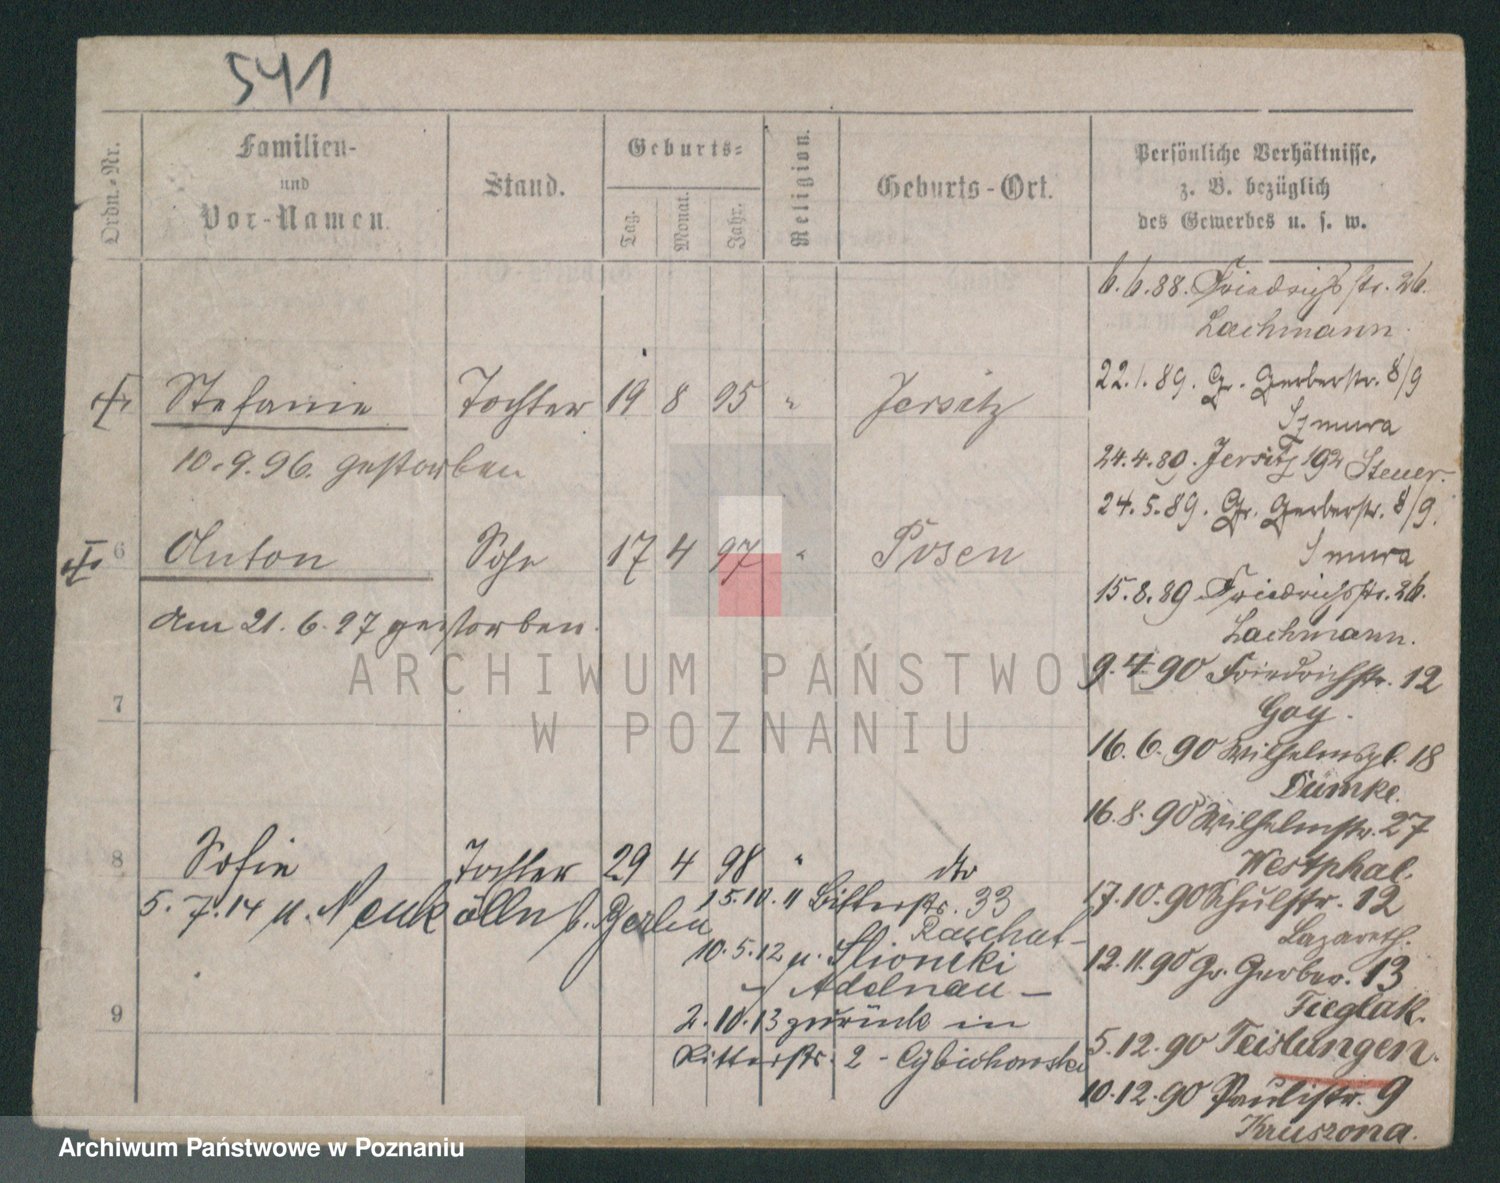 541
Ordn.-Nr.
Familien-
und
Vor-Namen.
Stand.
Geburts-
Tag.
Monat.
Jahr.
Religion.
Geburts-Ort.
Persönliche Verhältnisse,
z. B. bezüglich
des Gewerbes u. s. w.
Stefanie Tochter 19 8 95 " Jersitz
10.9.96. gestorben
6 Anton Sohn 17 4 97 " Posen
Am 21.6.97 gestorben.
7
8 Sofie Tochter 29 4 98 " dto
5.7.14 n. Neukölln b. Berlin
15.10.11 Ritterstr. 33
10.5.12 n.
Adelnau –
9
2.10.13 zurück in
Ritterstr. 2 - Cybichowski
6.6.88. Friedrichstr. 26.
Lachmann.
22.1.89. Gr. Gerberstr. 8/9
Szmura
24.4.89. Jersitz 192 Steuer.
24.5.89. Gr. Gerberstr. 8/9.
Smura
15.8.89 Friedrichsstr. 26.
Lachmann.
9.4.90 Friedrichstr. 12
Gay.
16.6.90 Wilhelmspl. 18
Dümke.
16.8.90 Wilhelmstr. 27
Westphal.
17.10.90 Schulstr. 12
Lazareth.
12.11.90 Gr. Gerber. 13
Fieglak.
5.12.90 Teistungen.
10.12.90 Paulistr. 9
Kruszona.
ARCHIWUM PAŃSTWOWE
W POZNANIU
Archiwum Państwowe w Poznaniu